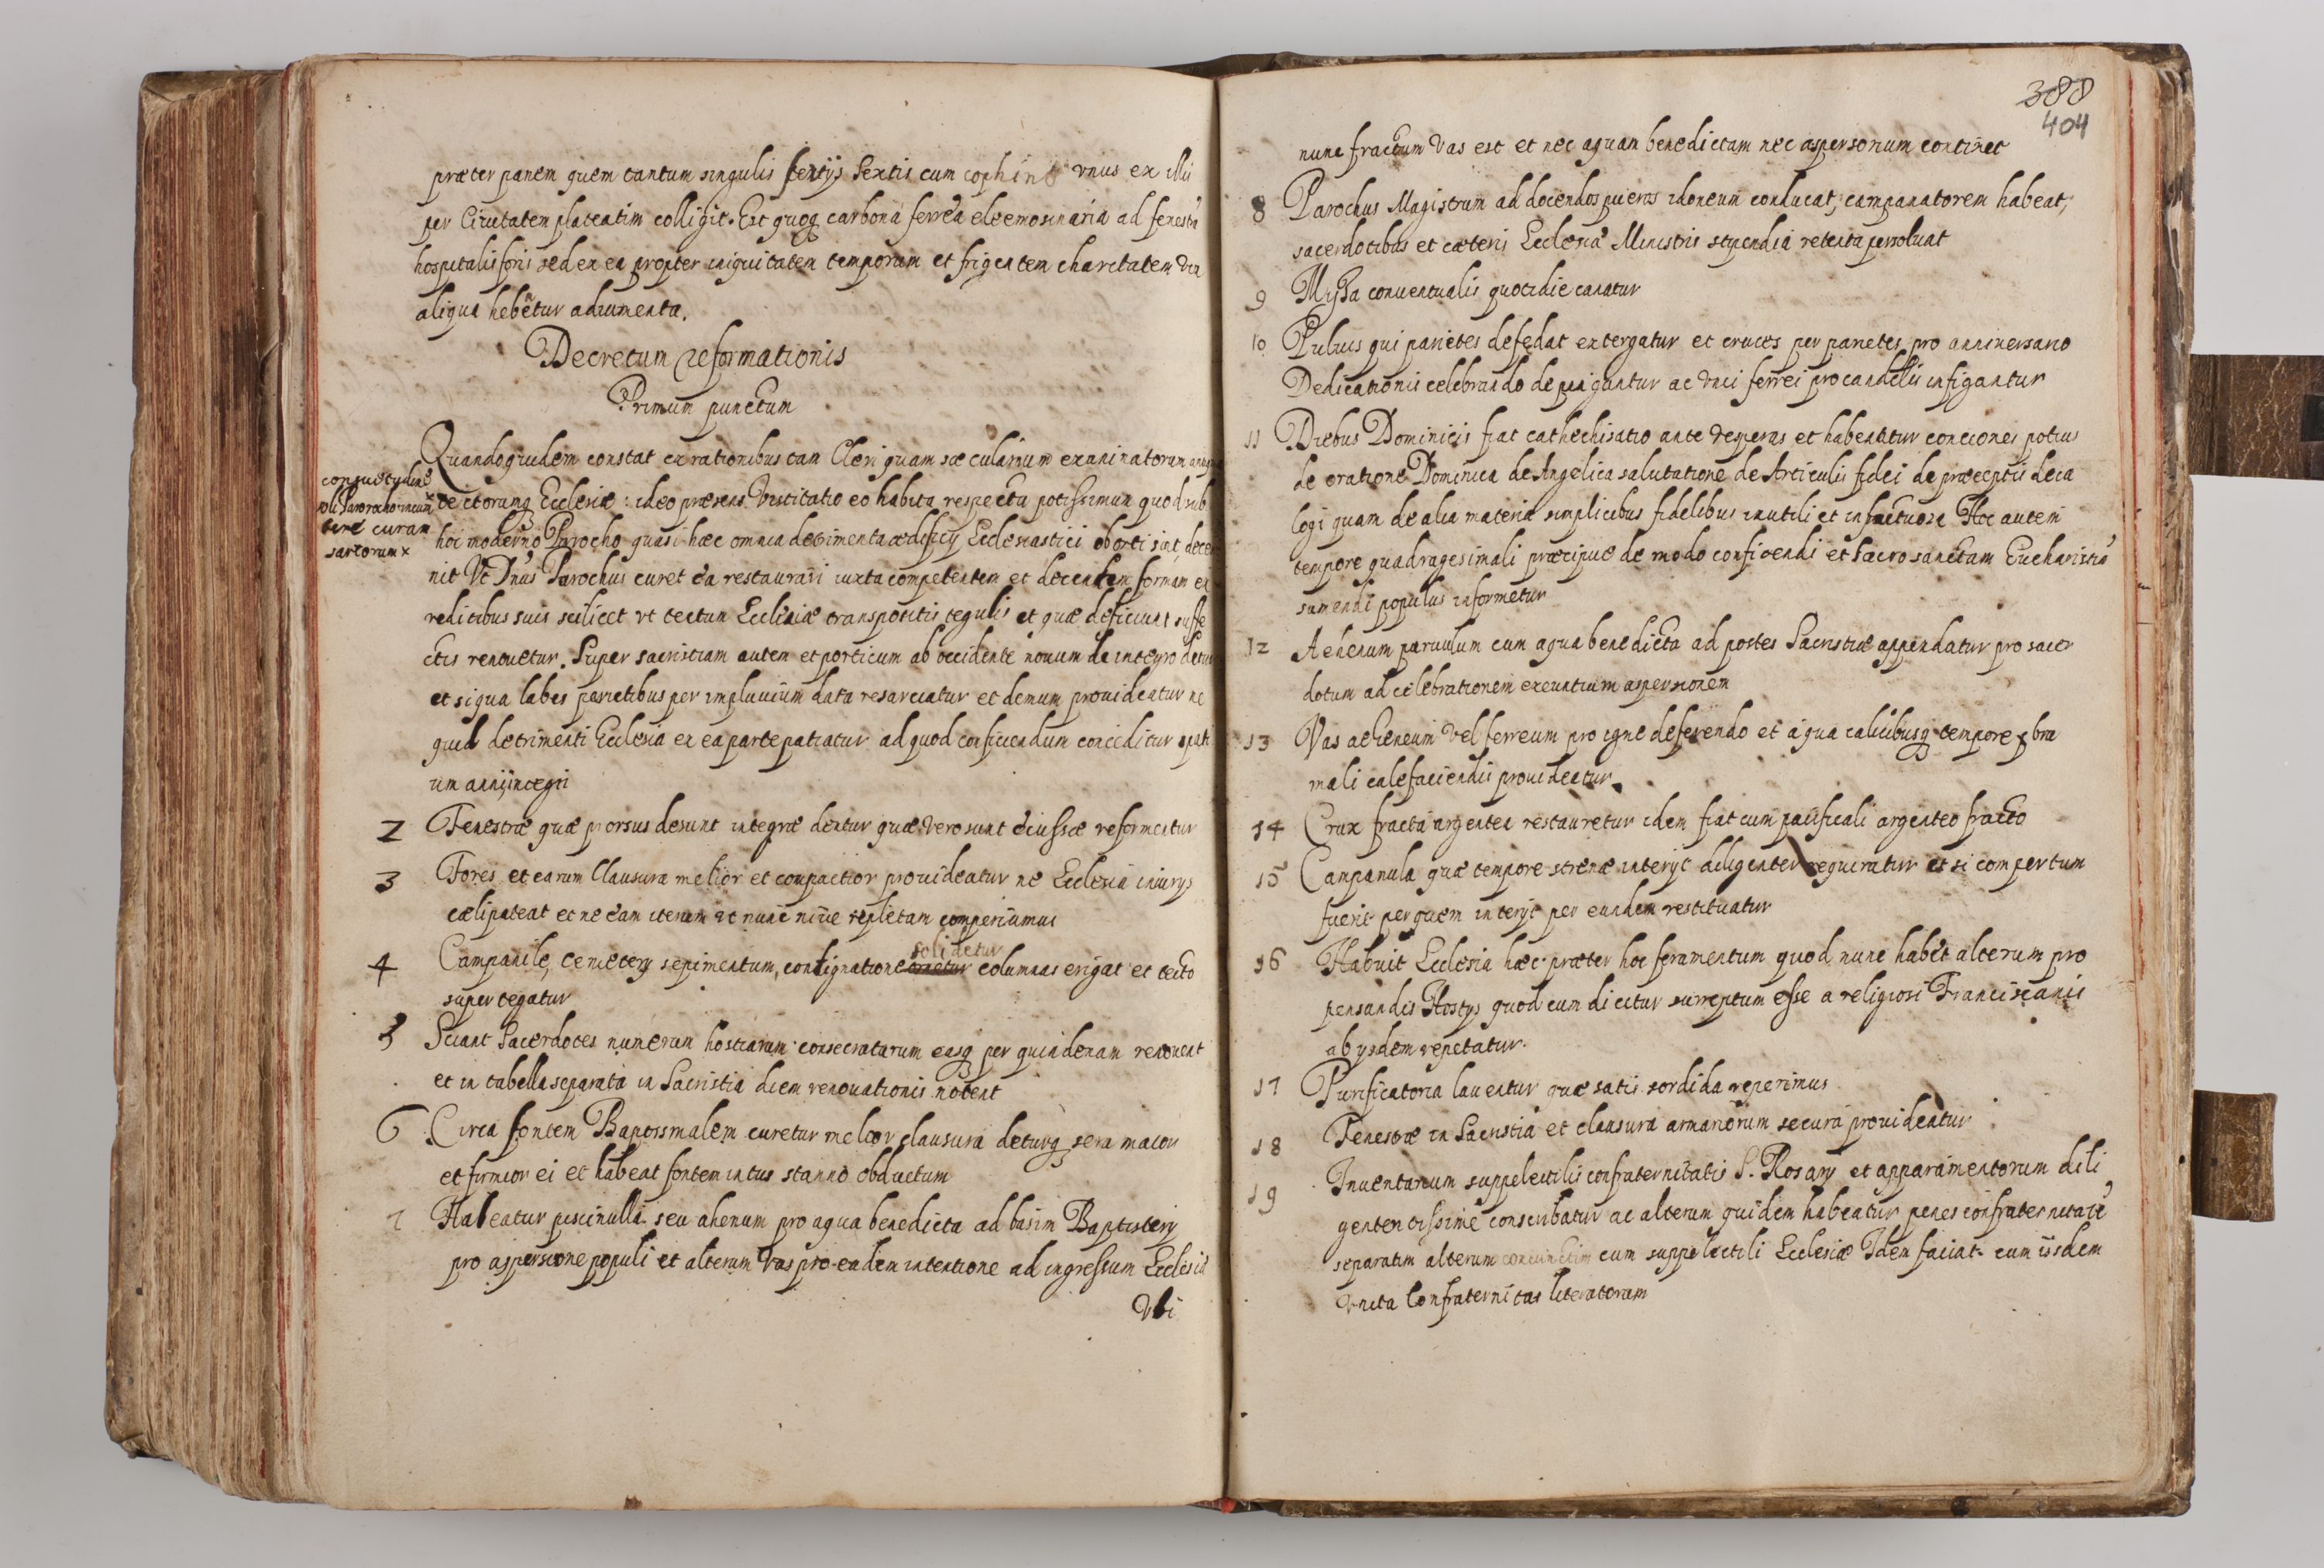 præter panem quem tantum singulis ferijs Sextis cum cophino vnus ex illis
per Ciuitatem plateatim colligit. Est quoq carbona ferrea eleemosinaria ad fenestrā
hospitalis foris sed ex ea propter iniquitatem temporum et frigentem charitatem vix
aliqua habētur adiumenta.
Decretum reformationis
Primum punctum
Quandoquidem constat ex rationibus tam Cleri quam sæcularium examinatorum antiqua
consuetudine
soli Parocho incum
bere curam
sartorum x
tectorumq Ecclesiæ: ideo præsens Visitatio eo habita respectu potissimum quod sub
hoc moderno Parocho quasi hæc omnia detrimenta ædificij Ecclesiastici oborti sint decer
nit Vt Dnus Parochus curet ea restaurari iuxta competentem et decentem formam ex
reditibus suis scilicet vt tectum Ecclesiæ transpositis tegulis et quæ deficiunt suffe
ctis renouetur. Super sacristiam autem et porticum ab occidente nouum de integro detur
et siqua labes parietibus per impluuium data resarciatur et demum prouideatur ne
quid detrimenti Ecclesia ex ea parte patiatur ad quod conficiendum conceditur spati
um anni integri
2 Fenestræ quæ prorsus desunt integræ dentur quæ vero sunt quassæ reformentur
3 Fores et earum Clausura melior et compactior prouideatur ne Ecclesia iniurijs
cæli pateat et ne eam iterum vt nunc niue repletam comperiamus
solidetur
4 Campanile, cemeterij sepimentum, contignatione columnas erigat et tecto
supertegatur
5 Sciant Sacerdotes numerum hostiarum consecratarum easq per quindenam renouent
et in tabella separata in Sacristia diem renouationis notent
6 Circa fontem Baptismalem curetur melior clausura deturq sera maior
et firmior ei et habeat fontem intus stanno obductum
7 Habeatur piscinulla seu ahenum pro aqua benedicta ad basim Baptisterij
pro aspersione populi et alterum vas pro eadem intentione ad ingressum Ecclesiæ
Vbi
388
404
nunc fractum vas est et nec aquam benedictam nec aspersorium continet
8 Parochus Magistrum ad docendos pueros idoneum conducat, campanatorem habeat,
sacerdotibus et cæteris Ecclesiæ Ministris stipendia retenta persoluat
9 Missa conuentualis quotidie canatur
10 Puluis qui parietes defedat extergatur et cruces per parietes pro anniuersario
Dedicationis celebrando depingantur ac vnci ferrei pro candelis infigantur
11 Diebus Dominicis fiat cathechisatio ante vesperas et habeantur conciones potius
de oratione Dominica de Angelica salutatione de Articulis fidei de præceptis deca
logi quam de alia materia simplicibus fidelibus inutili et infructuosa Hoc autem
tempore quadragesimali præcipue de modo confitendi et Sacrosanctam Eucharistiā
sumendi populus informetur
12 Ahenum paruulum cum aqua benedicta ad postes Sacristiæ appendatur pro sacer
dotum ad celebrationem exeuntium aspersionem
13 Vas aheneum vel ferreum pro igne deferendo et aqua calicibusq tempore xbra
mali calefaciendis prouideatur
14 Crux fracta argentea restauretur idem fiat cum pacificali argenteo fracto
15 Campanula quæ tempore strenæ interijt diligenter requiratur et si compertum
fuerit per quem interijt per eundem restituatur
16 Habuit Ecclesia hæc præter hoc feramentum quod nunc habet alterum pro
pensandis Hostijs quod cum dicitur surreptum esse a religiosis Franciscanis
ab ijsdem repetatur.
17 Purificatoria lauentur quæ satis sordida reperimus
18 Fenestræ in Sacristia et clausura armariorum secura prouideatur
19 Inuentarium suppelectilis confraternitatis S. Rosarij et apparamentorum dili
gententissime conscribatur ac alterum quidem habeatur penes confraternitatē
separatim alterum coniunctim cum suppelectili Ecclesiæ Idem faciat cum iisdem
vnita Confraternitas literatorum